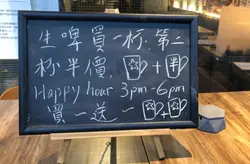 生啤買一杯,第二
杯半價 + 半
Happy hour 3pm-6pm
買一送一 +